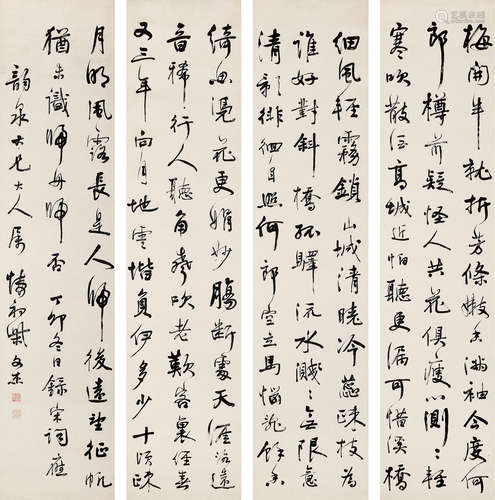 梅開半就折芳條嫩香滿袖今度何
郎樽前疑怪人共花俱瘦惻〻輕
寒吹散酒高城近怕聽更漏可惜溪橋
細風輕霧鎖山城清曉冷蕊疎枝為
誰好對斜橋孤驛流水濺〻無限意
清影徘徊自照何郎空立馬惱亂餘香
綺思憑花更娟妙腸斷處天涯路遠
音稀行人聽角聲吹老歎客裏經春
又三年向月地雲階負伊多少十頃疎
月明風露長是人歸後遠望征帆
猶未識歸舟歸否丁卯冬日錄宋詞應
韻泉大兄大人屬